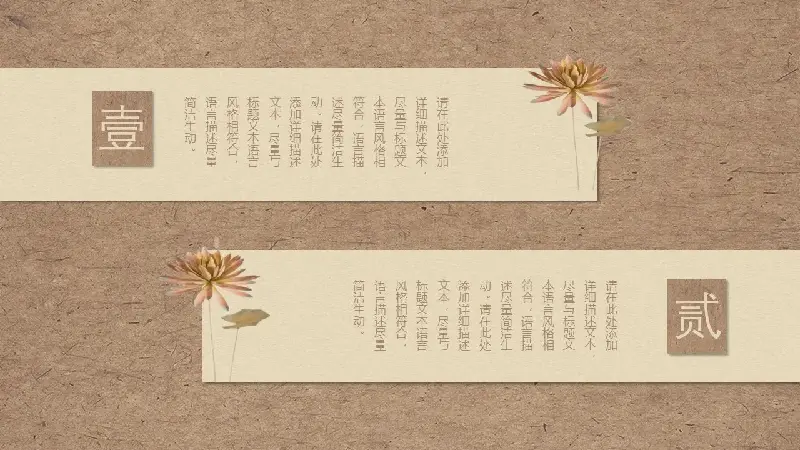 壹
请在此处添加
详细描述文本，
尽量与标题文
本语言风格相
符合 语言描
述尽量简洁生
动。请在此处
添加详细描述
文本 尽量与
标题文本语言
风格相符合，
语言描述尽量
简洁生动。
贰
请在此处添加
详细描述文本，
尽量与标题文
本语言风格相
符合 语言描
述尽量简洁生
动。请在此处
添加详细描述
文本 尽量与
标题文本语言
风格相符合，
语言描述尽量
简洁生动。